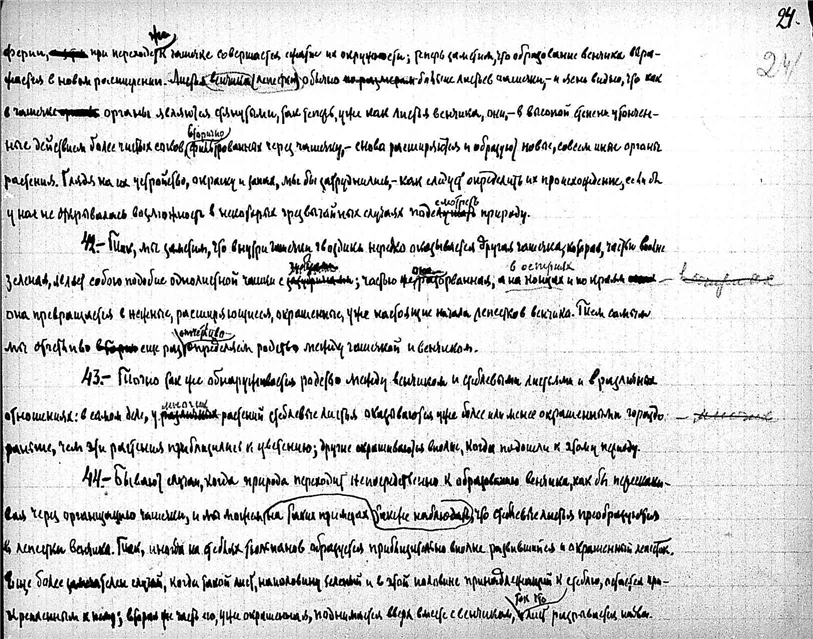 24.
24
же
ферии, при переходе к чашечке совершается сжатие их окружности; теперь заметим, что образование венчика выра-
жается в новом расширении. Листья венчика (лепестки) обычно больше листьев чашечки, – и ясно видно, что как
в чашечке органы являются стянутыми, так теперь, уже как листья венчика, они, – в высокой степени утончен-
вторично
ные действием более чистых соков, фильтрованных через чашечку, – снова расширяются и образуют новые, совсем иные органы
растения. Глядя на их устройство, окраску и запах, мы бы затруднились, – как следует определить их происхождение, если бы
смотреть
у нас не открывалась возможность в некоторых чрезвычайных случаях природу.
42. – Так, мы заметим, что внутри чашечки гвоздики нередко оказывается другая чашечка, которая, частью вполне
зеленая, являет собою подобие однолистной чашки с ; частью разорванная, а на концах и по краям
в остриях
она превращается в нежные, расширяющиеся, окрашенные, уже настоящие начала лепестков венчика. Тем самым
отчетливо
мы еще раз определяем родство между чашечкой и венчиком.
43. – Точно так же обнаруживается родство между венчиком и стеблевыми листьями и в различных
многих
отношениях: в самом деле, у растений стеблевые листья оказываются уже более или менее окрашенными гораздо
раньше, чем эти растения приблизились к цветению; другие окрашиваются вполне, когда подошли к этому периоду.
44. – Бывают случаи, когда природа переходит непосредственно к образованию венчика, как бы перескаки-
вая через организацию чашечки, и мы можем на таких примерах также наблюдать, что стеблевые листья преобразуются
в лепестки венчика. Так, иногда на стеблях тюльпанов образуется приблизительно вполне развившийся и окрашенный лепесток.
Еще более случай, когда такой лист, наполовину зеленый и в этой половине принадлежащий к стеблю, остается при-
крепленным к ; вторая же часть его, уже окрашенная, поднимается вверх вместе с венчиком,
так что
лист разрывается надвое.